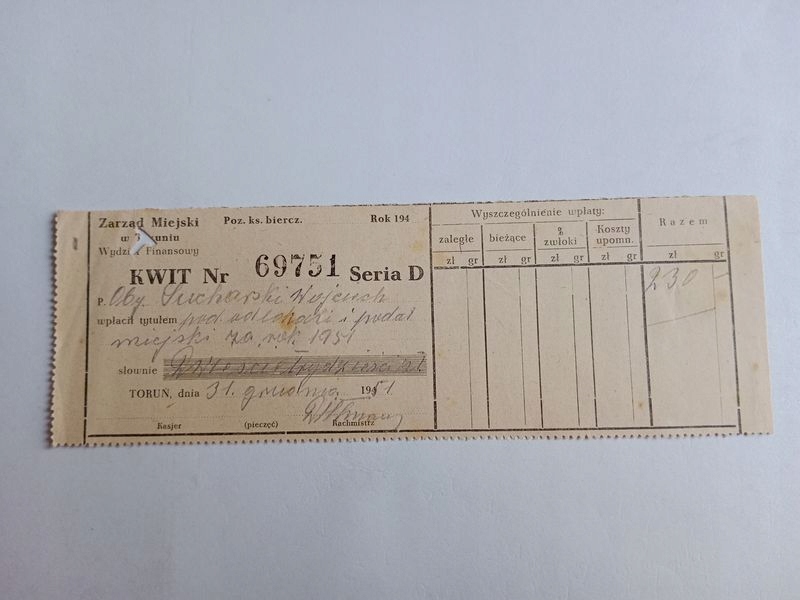 Zarząd Miejski
w uniu
Wydzi Finansowy
Poz. ks. biercz.
Rok 194
KWIT Nr 69751 Seria D
P. Oby. Sucharski Wojciech
wpłacił tytułem pod. od lokali i podat
miejski za rok 1951
słownie Dwieście trzydzieści zł
TORUŃ, dnia 31. grudnia 1951
Kasjer (pieczęć) Rachmistrz
Wyszczególnienie wpłaty:
zaległe bieżące % zwłoki Koszty upomn. Razem
zł gr zł gr zł gr zł gr zł gr
230 -